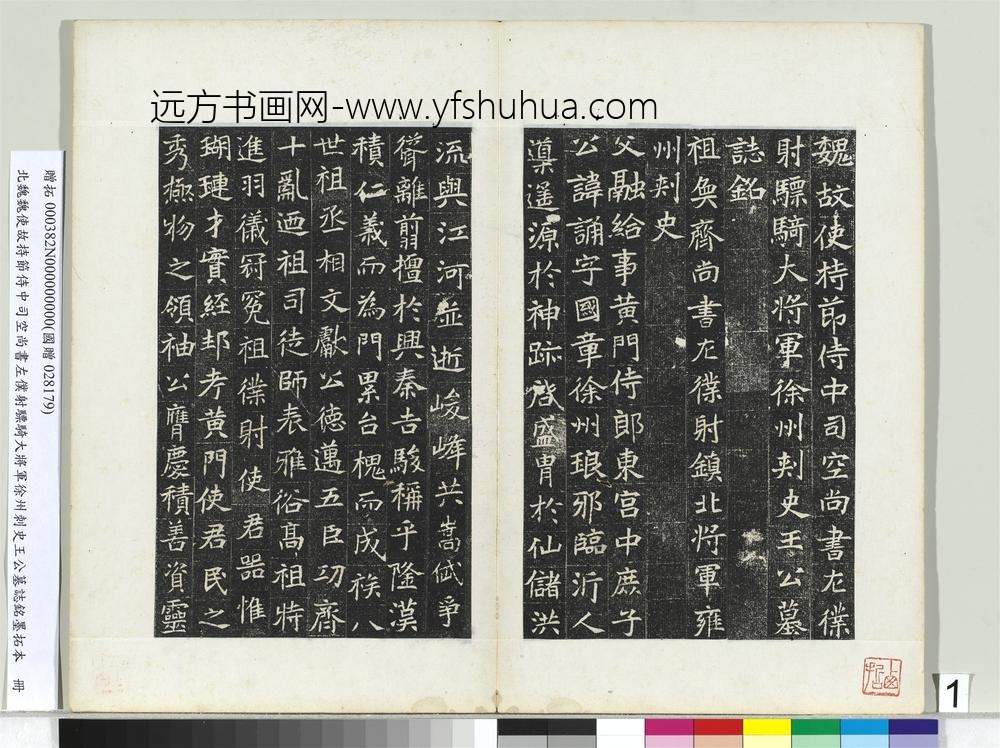 远方书画网-www.yfshuhua.com
魏故使持節侍中司空尚書左僕
射驃騎大將軍徐州刾史王公墓
誌銘
祖奐齊尚書左僕射鎮北將軍雍
州刾史
父融給事黄門侍郎東宫中庶子
公諱誦字國章徐州琅邪臨沂人
導遥源於神跡啓盛胄於仙儲洪
流與江河並逝峻峰共嵩岱爭
聳離翦擅於興秦吉駿稱乎隆漢
積仁義而為門累台槐而成族八
世祖丞相文獻公德邁五臣功齊
十亂廼祖司徒師表雅俗髙祖特
進羽儀冠冕祖僕射使君器惟
瑚璉才實經邦考黄門使君民之
秀極物之領袖公膺慶積善資靈
贈拓 000382N000000000(國贈 028179)
北魏魏使故持節侍中司空尚書左僕射驃騎大將軍徐州刺史王公墓誌銘墨拓本 冊
1